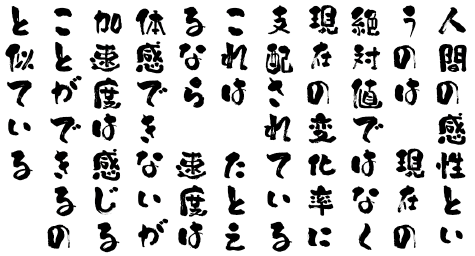 人間の感性とい
うのは　現在の
絶対値ではなく
現在の変化率に
支配されている
これは　たとえ
るなら　速度は
体感できないが
加速度は感じる
ことができるの
と似ている